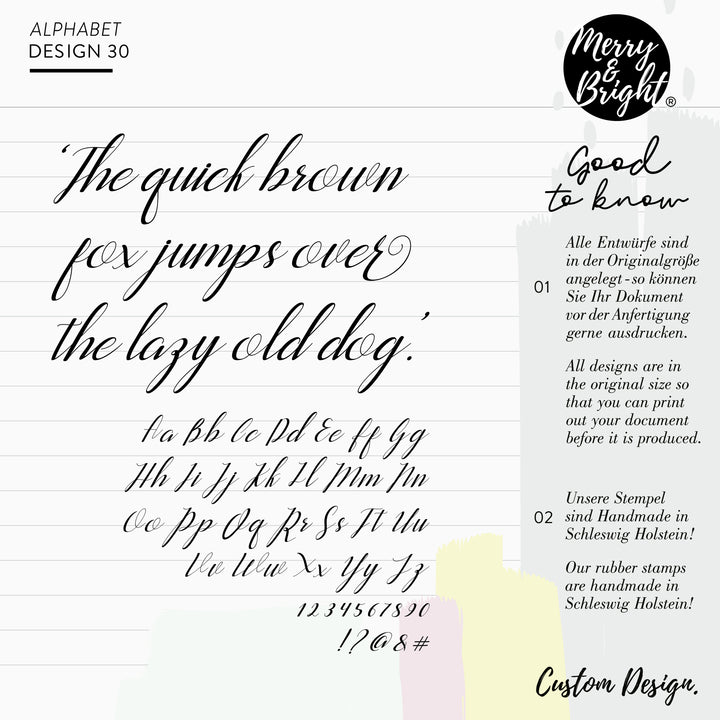 ALPHABET
DESIGN 30
Merry
&
Bright®
'The quick brown
fox jumps over
the lazy old dog.'
Aa Bb Cc Dd Ee Ff Gg
Hh Ii Jj Kk Ll Mm Nn
Oo Pp Qq Rr Ss Tt Uu
Vv Ww Xx Yy Zz
1234567890
!?@&#
Good
to know
01
Alle Entwürfe sind
in der Originalgröße
angelegt - so können
Sie Ihr Dokument
vor der Anfertigung
gerne ausdrucken.
All designs are in
the original size so
that you can print
out your document
before it is produced.
02
Unsere Stempel
sind Handmade in
Schleswig Holstein!
Our rubber stamps
are handmade in
Schleswig Holstein!
Custom Design.